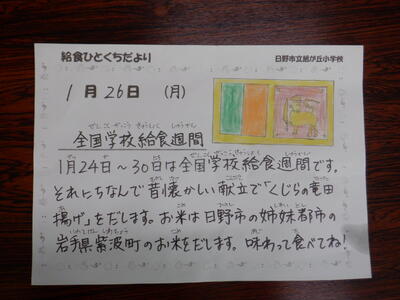 給食ひとくちだより
日野市立旭が丘小学校
1月26日(月)
ぜんこくがっこうきゅうしょくしゅうかん
全国学校給食週間
1月24日~30日は全国学校給食週間です。
それにちなんで昔懐かしい献立で「くじらの竜田
揚げ」をだします。お米は日野市の姉妹都市の
岩手県紫波町のお米をだします。味わって食べてね!